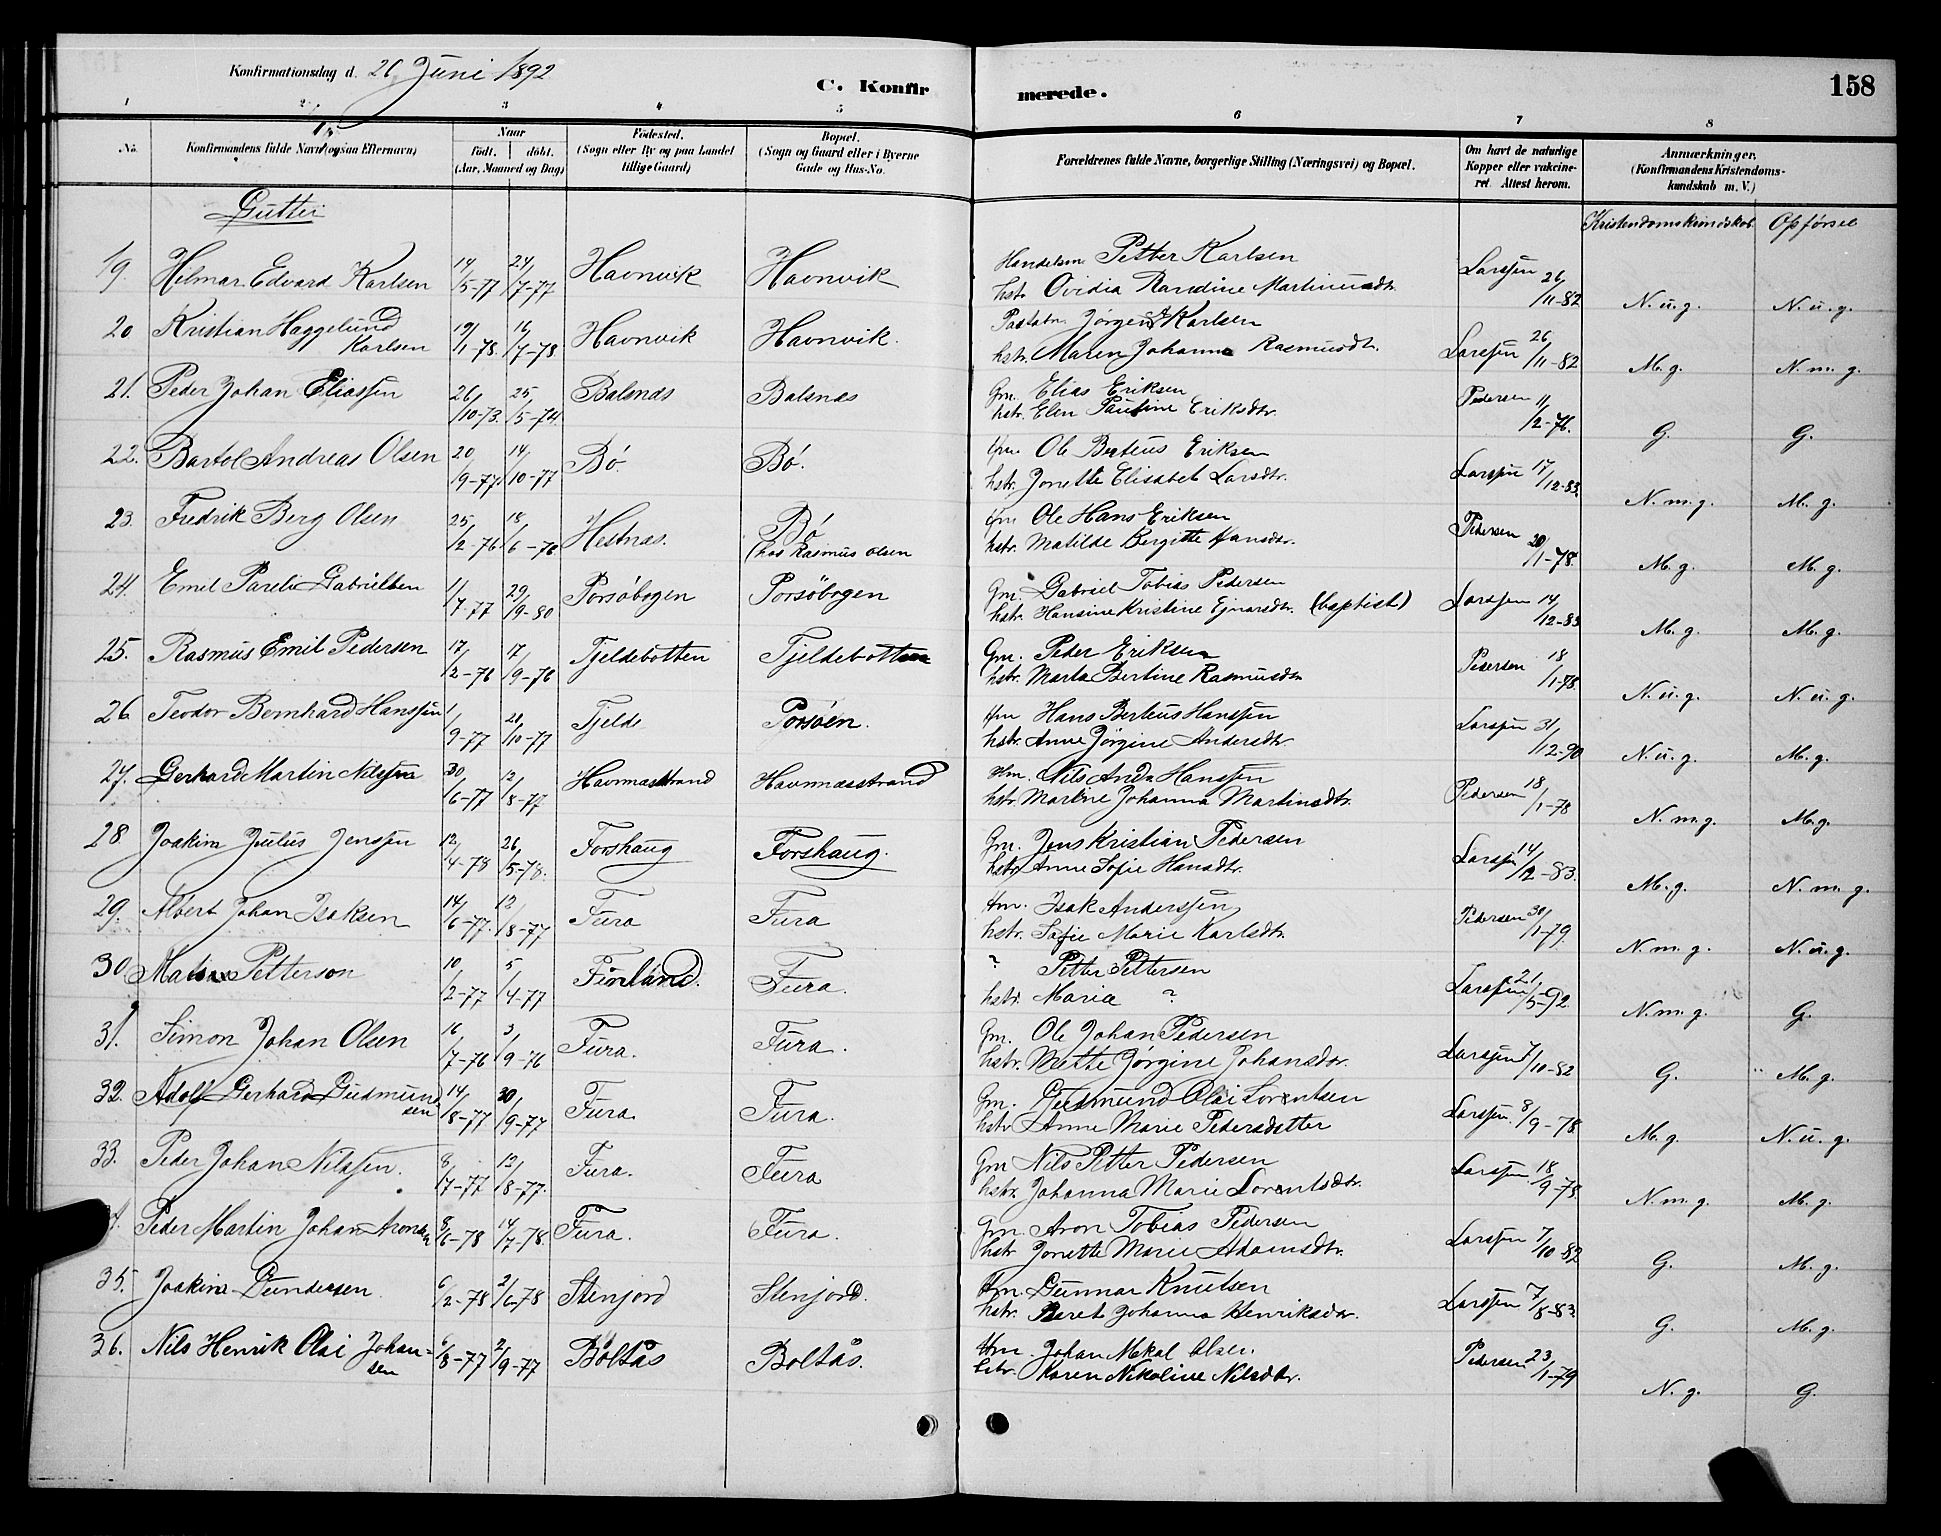 Konfirmationsdag d. 26 Juni 1892
C. Konfirmerede.
158
1 2 3 4 5 6 7 8
No. Konfirmandens fulde Navn (ogsaa Efternavn) Naar Født. døbt. (Aar, Maaned og Dag) Fødested. (Sogn eller By og paa Landet tillige Gaard) Bopæl. (Sogn og Gaard eller i Byerne Gade og Hus-No. Forældrenes fulde Navne, borgerlige Stilling (Næringsvei) og Bopæl. Om havt de naturlige Kopper eller vakcineret. Attest herom. Anmærkninger. (Konfirmandens Kristendomskundskab m. V.)
Gutter
Kristendomskundskab Opførsel
19. Hilmar Edvard Karlsen 14/5-77 24/7-77 Havnvik Havnvik Handelsm Petter Karlsen
hstr. Ovidia Randine Martinusdtr. Larssen 26/11-82 N.u.g. N.u.g.
20 Kristian Haggelund Karlsen 19/1-78. 16/7-78 Havnvik Havnvik. Jørgen Karlsen
hstr. Maren Johanna Rasmusdt. Larssen 26/11-82 M.g. N.m.g.
21. Peder Johan Eliassen 26/10-73. 25/5-74. Balsnæs Balsnæs Gm. Elias Eriksen
hstr. Elen Pauline Eriksdtr. Pedersen 11/2-76. G. G.
22. Bartol Andreas Olsen 20/9-77. 14/10-77 Bø. Bø. Hm. Ole Berteus Eriksen
hstr. Jonette Elisabet Larsdtr. Larssen 17/12-83. N.m.g. M.g.
23. Fredrik Berg Olsen 25/2-76 18/6-76 Hestnæs. Bø (hos Rasmus Olsen Hm Ole Hans Eriksen
hstr. Matilde Bergitte Hansdtr. Pedersen 20/1-78. M.g. M.g.
24. Emil Pareli Gabrielsen 1/7-77 29/9-80 Porsøbogen Porsöbogen Gm. Gabriel Tobias Pedersen
hstr. Hansine Kristine Ejnarsdtr. (baptist) Larssen 14/12-83 M.g. M.g.
25. Rasmus Emil Pedersen 17/2-76 17/9-76 Tjeldebotten Tjeldebotten Gm. Peder Eriksen
hstr. Marta Bertine Rasmusdtr Pedersen 18/1-78. N.u.g. N.u.g.
26 Teodor Bernhard Hanssen 1/9-77 20/10-77 Tjelde Porsøen. Hm Hans Berteus Hanssen
hstr. Anne Jörgine Andersdtr. Larssen 31/12-90 N.u.g. M.g.
27. Gerhard Martin Nilssen 30/6-77 12/8-77 Havnnæsstrand Havnnæsstrand Hm. Nils Andr. Hanssen
hstr. Martine Johanna Martinsdtr. Pedersen 18/1-78 N.m.g. M.g.
28. Joakim Julius Jenssen 12/4-78 26/5-78. Forshaug Forshaug. Gm. Jens Kristian Pedersen
hstr. Anne Sofie Hansdtr. Larssen 14/12-83. M.g. N.m.g.
29. Albert Johan Isaksen 14/6-77. 12/8-77 Fura Fura Hm. Isak Anderssen
hstr. Sofie Marie Karlsdtr. Pedersen 30/1-79. N.m.g. N.u.g.
30 Petterson 10/2-77 5/4-77 Finland. Fura. ? Petter Pettersen
hstr. Maria ? Larssen 21/5-92. N.m.g. G.
31. Simon Johan Olsen 16/7-76 3/9-76 Fura. Fura. Gm. Ole Johan Pedersen
hstr. Mette Jørgine Johansdtr. Larssen 7/10-82 G. M.g.
32. Adolf Gerhard Gudmundsen 14/8-77 30/9-77 Fura. Fura. Gm. Gudmund Olai Lorentsen
hstr Anne Marie Pedersdatter Larssen. 8/9-78. M.g. N.u.g.
33. Peder Johan Nilssen. 8/7-77 12/8-77. Fura. Fura Gm Nils Petter Pedersen
hstr. Johanna Marie Lorentsdtr. Larssen 18/9-78 N.m.g. M.g.
Peder Martin Johan Aronsen 8/6-78 14/7-78. Fura. Fura. Gm. Aron Tobias Pedersen
hstr Jonette Marie Adamsdtr. Larssen 7/10-82 G. M.g.
35. Joakim Gundersen. 6/2-78 2/6-78 Stenjord Stenjord. Hm. Gunnar Knutsen
hstr. Beret Johanna Henriksdtr. Larssen 7/8-83. G. M.g.
36. Nils Henrik Olai Johansen 6/8-77 2/9-77 Böltås Boltås. Hm. Johan Mekal Olsen
hstr. Karen Nikoline Nilsdtr. Pedersen 23/1-79 N.g. G.